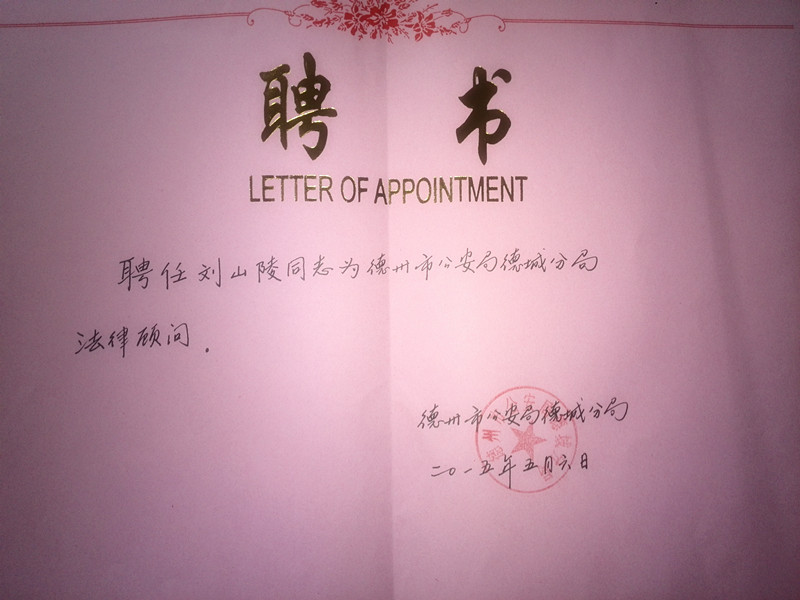 聘书
LETTER OF APPOINTMENT
聘任刘山陵同志为德州市公安局德城分局
法律顾问.
德州市公安局德城分局
二〇一五年五月六日